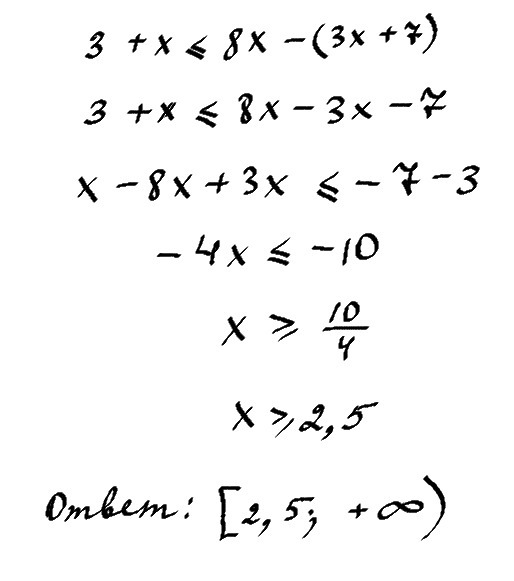 3 + x ⩽ 8x − (3x + 7)
3 + x ⩽ 8x − 3x − 7
x − 8x + 3x ⩽ − 7 − 3
− 4x ⩽ −10
x ⩾ 10/4
x ⩾ 2,5
Ответ: [2,5; +∞)